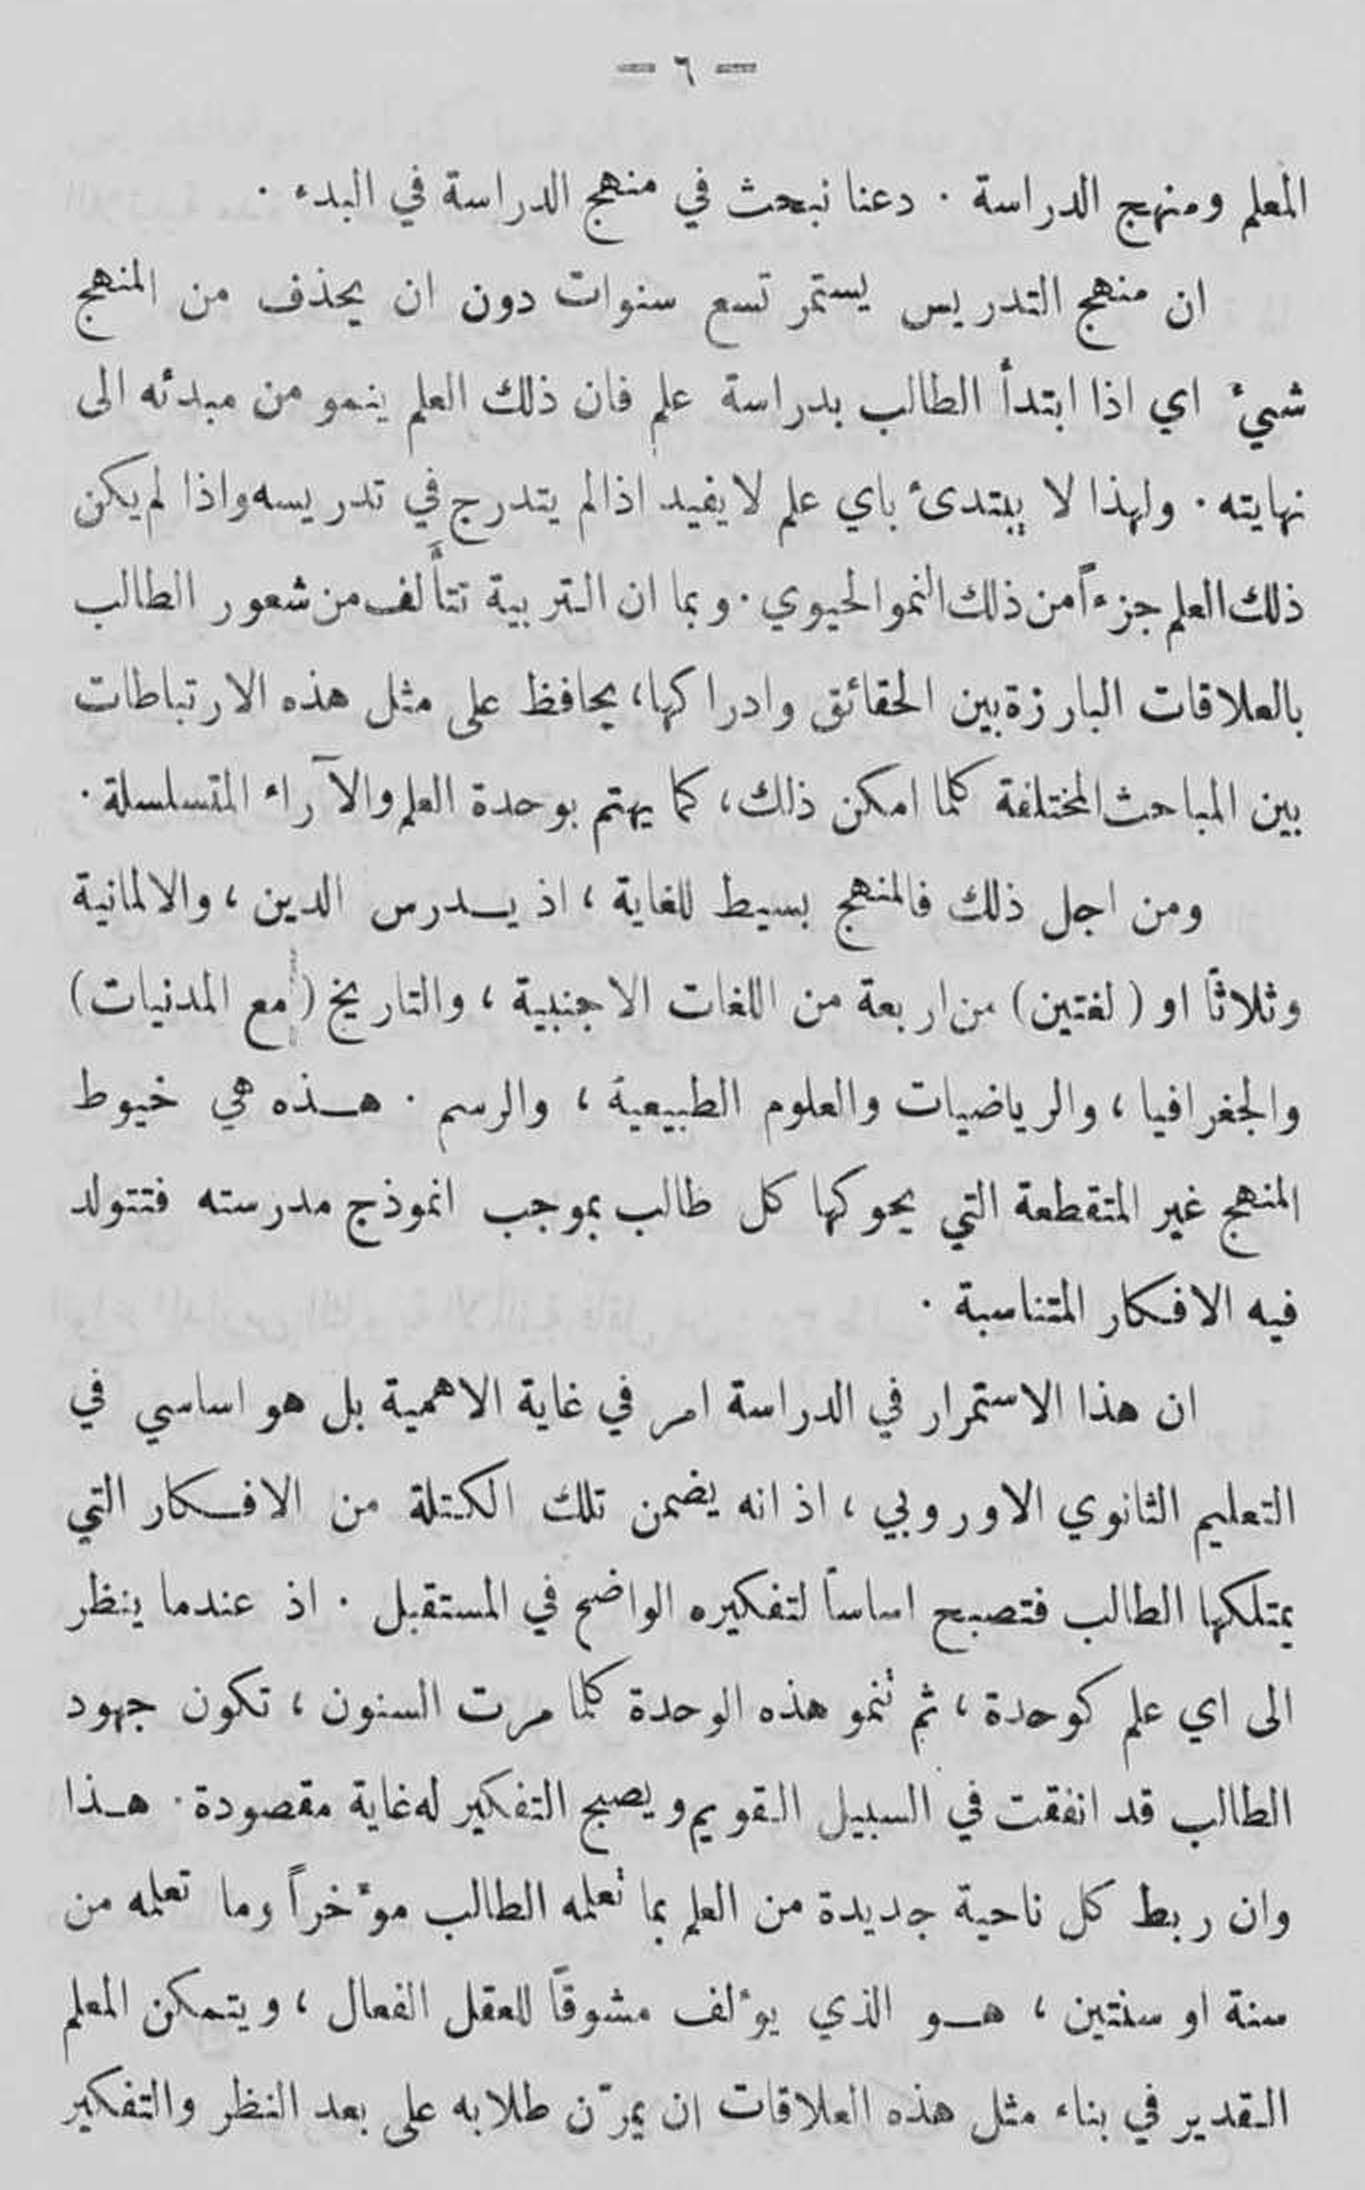 — ٦ —
المعلم ومنهج الدراسة . دعنا نبحث في منهج الدراسة في البدء .
ان منهج التدريس يستمر تسع سنوات دون ان يحذف من المنهج
شيئ اي اذا ابتدأ الطالب بدراسة علم فان ذلك العلم ينمو من مبدئه الى
نهايته . ولهذا لا يبتدئ باي علم لا يفيد اذا لم يتدرج في تدريسه واذا لم يكن
ذلك العلم جزءاً من ذلك النمو الحيوي . وبما ان التربية تتألف من شعور الطالب
بالعلاقات البارزة بين الحقائق وادراكها، يحافظ على مثل هذه الارتباطات
بين المباحث المختلفة كلما امكن ذلك، كما يهتم بوحدة العلم والآراء المتسلسلة .
ومن اجل ذلك فالمنهج بسيط للغاية ، اذ يـدرس الدين ، والالمانية
وثلاثاً او ( لغتين ) من اربعة من اللغات الاجنبية ، والتاريخ ( مع المدنيات )
والجغرافيا ، والرياضيات والعلوم الطبيعية ، والرسم . هـذه هي خيوط
المنهج غير المتقطعة التي يحوكها كل طالب بموجب انموذج مدرسته فتتولد
فيه الافكار المتناسبة .
ان هذا الاستمرار في الدراسة امر في غاية الاهمية بل هو اساسي في
التعليم الثانوي الاوروبي ، اذ انه يضمن تلك الكتلة من الافـكار التي
يمتلكها الطالب فتصبح اساساً لتفكيره الواضح في المستقبل . اذ عندما ينظر
الى اي علم كوحدة ، ثم تنمو هذه الوحدة كلما مرت السنون ، تكون جهود
الطالب قد انفقت في السبيل القويم ويصبح التفكير له غاية مقصودة . هـذا
وان ربط كل ناحية جديدة من العلم بما تعلمه الطالب مؤخراً وما تعلمه من
سنة او سنتين ، هـو الذي يؤلف مشوقاً للعقل الفعال ، ويتمكن المعلم
القدير في بناء مثل هذه العلاقات ان يمرّن طلابه على بعد النظر والتفكير